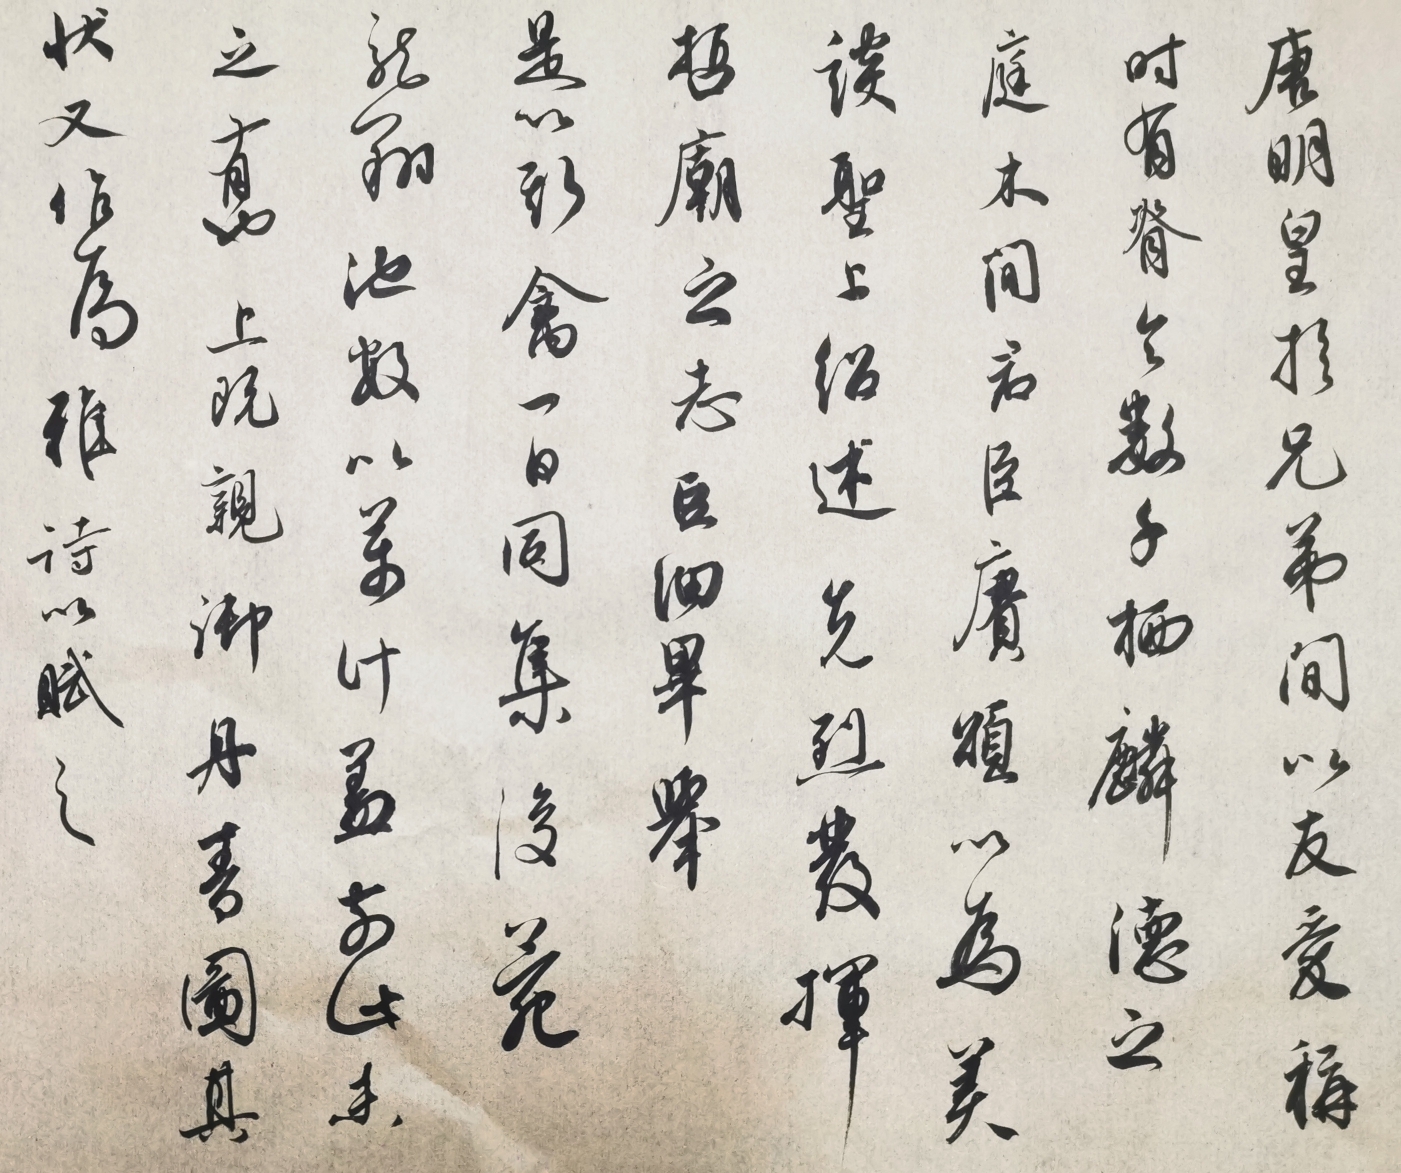 唐明皇於兄弟間以友愛稱
時有脊令數千栖麟德之
庭木間君臣賡頌以為美
談聖上紹述先烈發揮
哲廟之志巨細畢舉
是以形禽一日同集後苑
龍翔池數以萬計蓋前此未
之有也上既親御丹青圖其
狀又作為雅詩以賦之